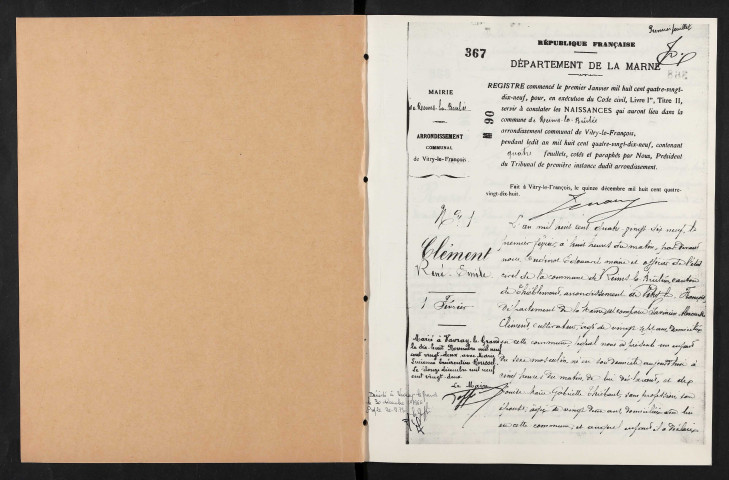 Premier feuillet
367
RÉPUBLIQUE FRANÇAISE
DÉPARTEMENT DE LA MARNE
MAIRIE
ARRONDISSEMENT
COMMUNAL
de Vitry-le-François
REGISTRE commencé le premier Janvier mil huit cent quatre-vingt-
dix-neuf, pour, en exécution du Code civil, Livre Ier, Titre II,
servir à constater les NAISSANCES qui auront lieu dans la
commune de Reims-la-Brûlée
arrondissement communal de Vitry-le-François,
pendant ledit an mil huit cent quatre-vingt-dix-neuf, contenant
quatre feuillets, cotés et paraphés par Nous, Président
du Tribunal de première instance dudit arrondissement.
Fait à Vitry-le-François, le quinze décembre mil huit cent quatre-
vingt-dix-huit.
N° 1
Clément
René Emile
1 Février
L'an mil huit cent quatre vingt dix neuf, le
premier février, à huit heures du matin, par devant
nous, Edouard maire et officier de l'état
civil de la commune de Reims la Brûlée, canton
de Thiéblemont, arrondissement de Vitry le François
département de la Marne, est comparu Alexandre
Clément, cultivateur, âgé de vingt sept ans, domicilié
en cette commune, lequel nous a présenté un enfant
du sexe masculin, né en son domicile, aujourd'hui à
heures du matin, de lui déclarant, et de
Marie Gabrielle Thiébault, sans profession, son
épouse, âgée de vingt deux ans, domiciliée avec lui
en cette commune, et auquel enfant il a déclaré
Marié à Vavray le Grand
le dix huit Novembre mil neuf
cent vingt deux avec Marie
Le douze décembre mil neuf
cent vingt deux
Le Maire